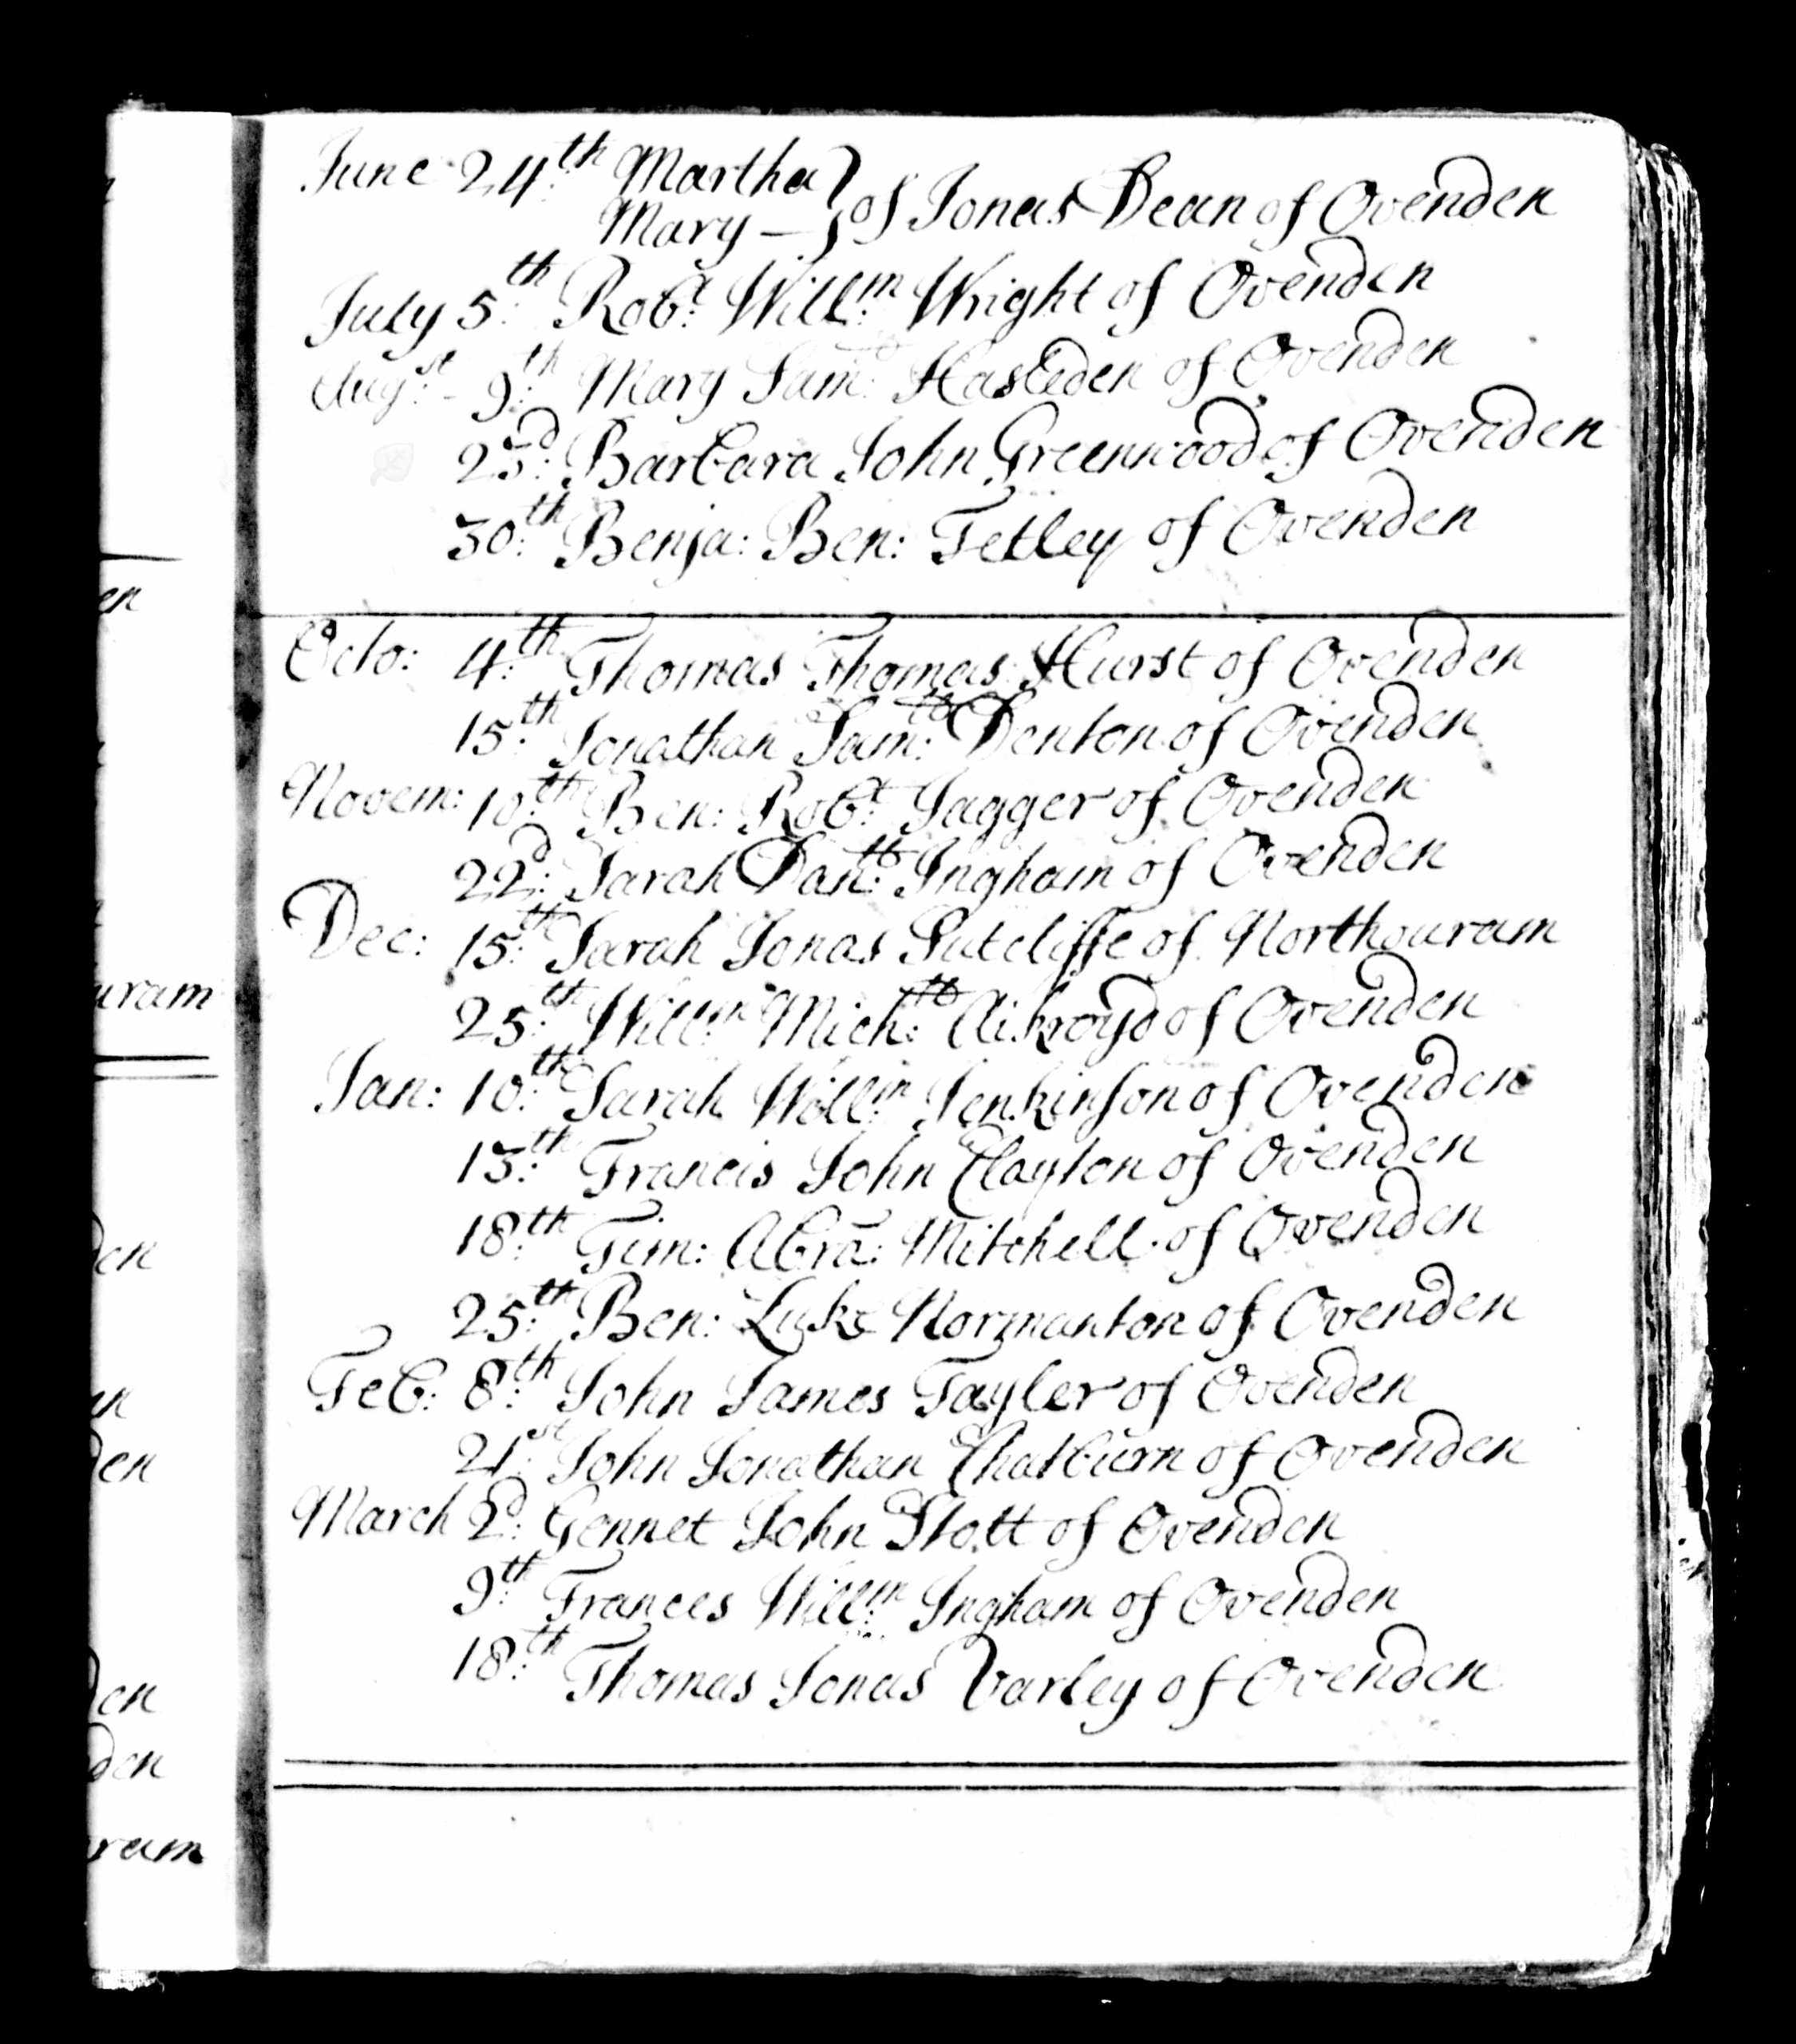 June 24th Martha
Mary — } of Jonas Dean of Ovenden
July 5th Robt Willm Wright of Ovenden
Augst - 9th Mary Saml of Ovenden
23d Barbara John Greenwood of Ovenden
30th Benja: Ben: Tetley of Ovenden
Octo: 4th Thomas Thomas Hurst of Ovenden
15th Jonathan Saml: Denton of Ovenden
Novem: 10th Ben: Robt Jagger of Ovenden
22d: Sarah Danl: Ingham of Ovenden
Dec: 15th Sarah Jonas Sutcliffe of Northouram
25th Willm Michl: Aikroyd of Ovenden
Jan: 10th Sarah Willm Jenkinson of Ovenden
13th Francis John Clayton of Ovenden
18th Tim: Abra: Mitchell of Ovenden
25th Ben: Luke Normanton of Ovenden
Feb: 8th John James Tayler of Ovenden
21st John Jonathan Chatburn of Ovenden
March 2d: Gennet John Stott of Ovenden
9th Frances Willm Ingham of Ovenden
18th Thomas Jonas Varley of Ovenden
en
uram
den
en
den
den
den
ram